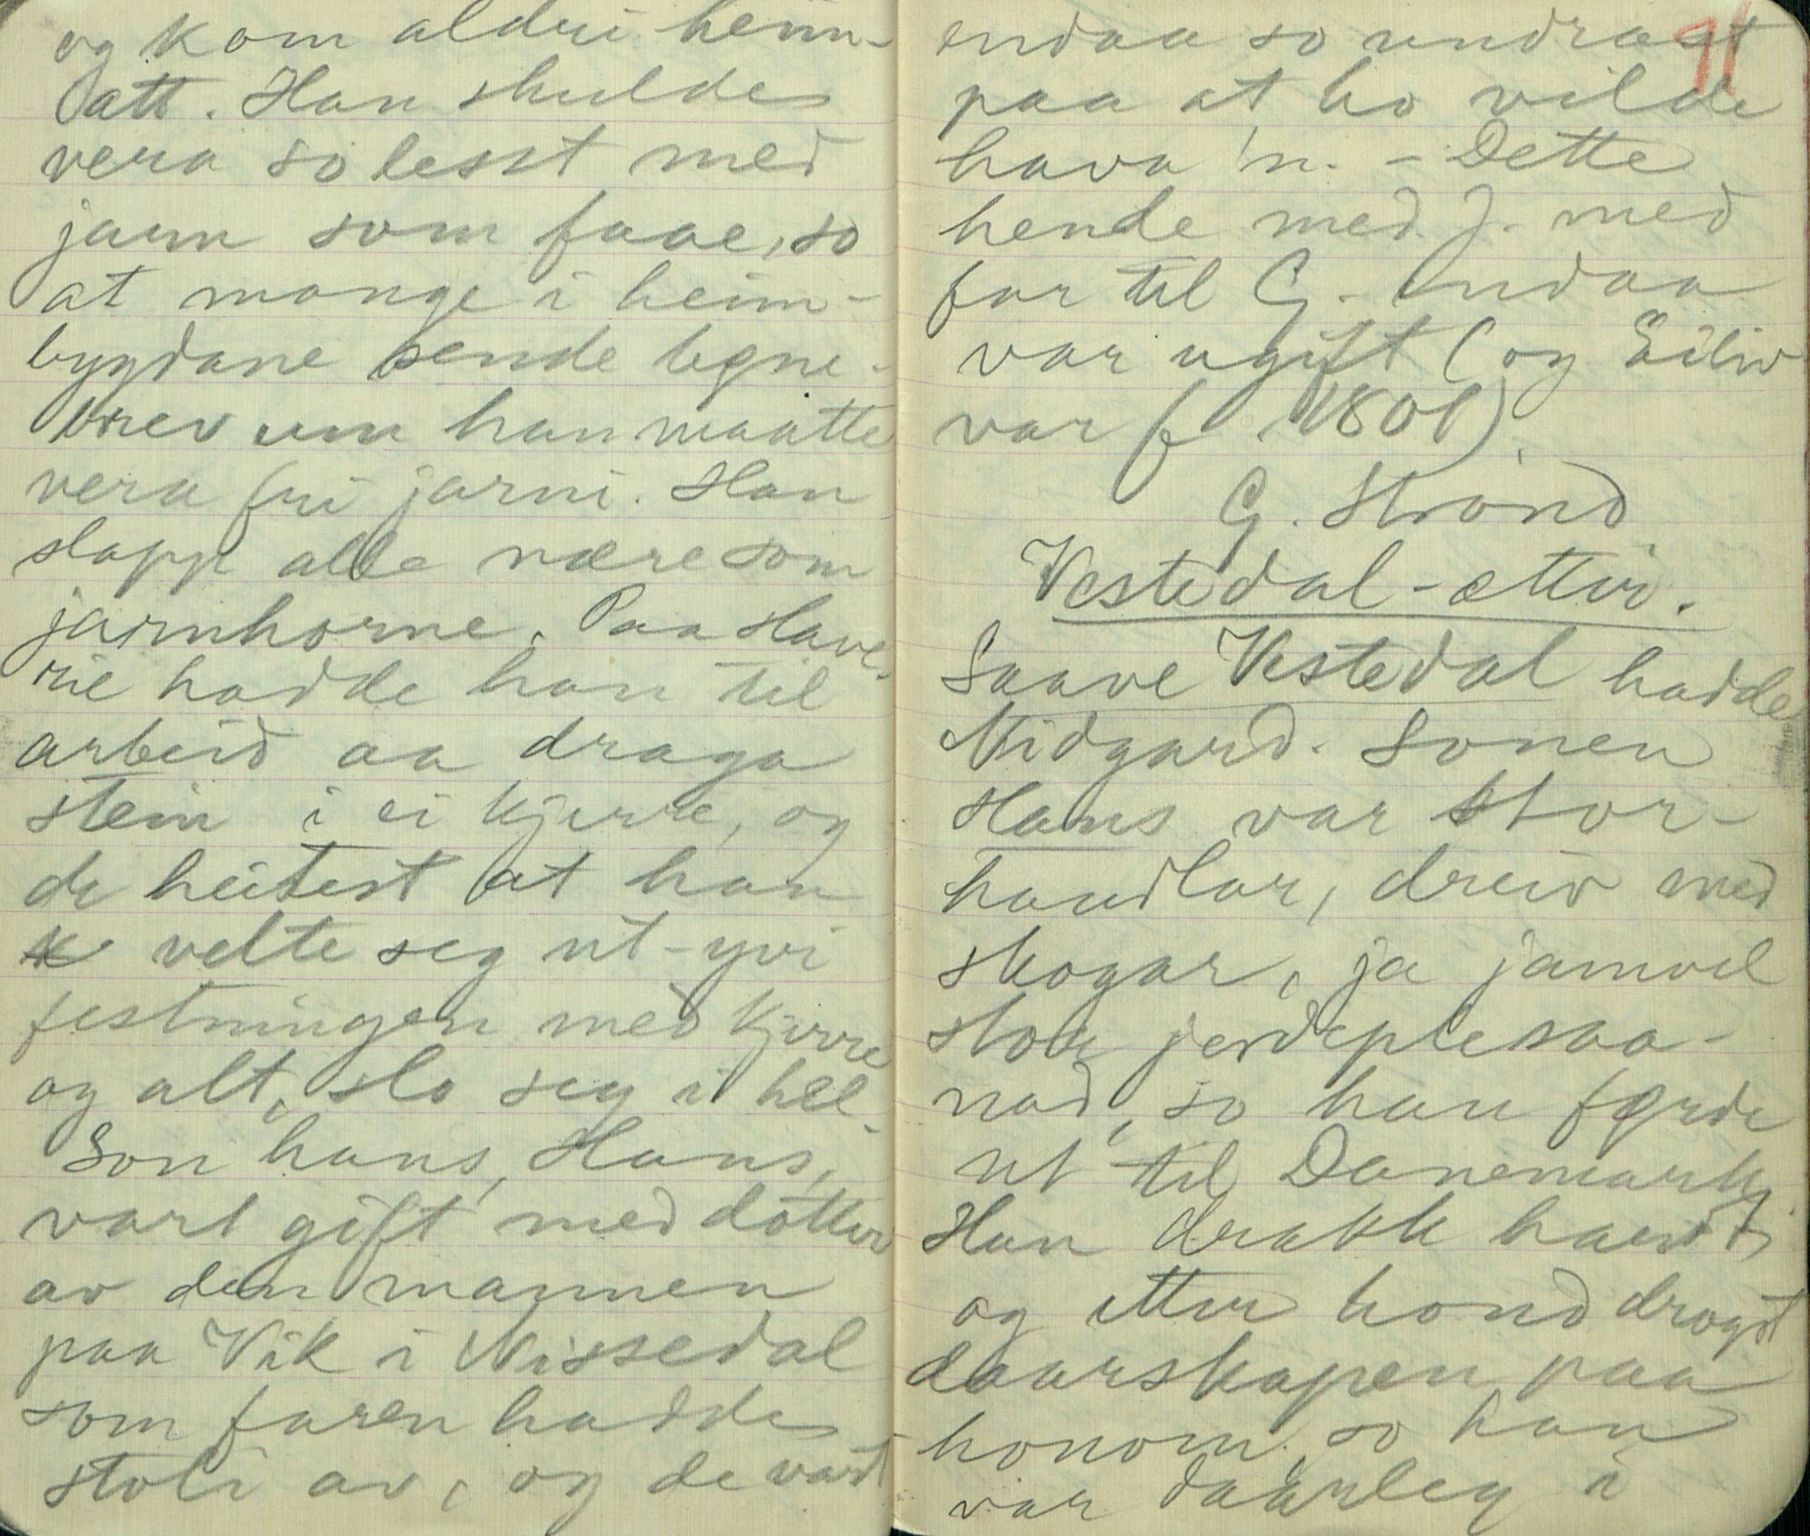 og kom aldri heim-
att. Han skulde
vera so lesst med
jarn som faae, so
at mange i heim-
bygdane sende bøne-
brev um han maatte
vera fri jarni. Han
slapp alle nære som
jarnhorne. Paa Slave-
rie hadde han til
arbeid aa draga
stein i ei kjerre, og
de heitest at han
velte seg ut-yvi
festningen med kjerre
og alt, slo seg i hel.
Son hans, Hans,
vart gift med dotter
av den mannen
paa Vik i Nissedal
som faren hadde
stoli av, og de vart
71
endaa so undrast
paa at ho vilde
hava 'n. - Dette
hende med J. med
far til G. endaa
var ugift (og Eiliv
var f 1801)
G. Strond
Vestedal-ætti.
Saave Vestedal hadde
Midgard. Sonen
Hans var stor-
handlar, dreiv med
skogar, ja jamvel
stor jordeplesaa-
nad, so hanførde
ut til Danemark,
Han drakk hardt,
og etter hond drogst
daarskapen paa
honom, so han
var daarleg i